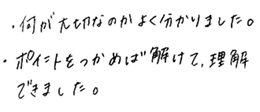 ・何が大切なのかよく分かりました。
・ポイントをつかめば解けて,理解
できました。